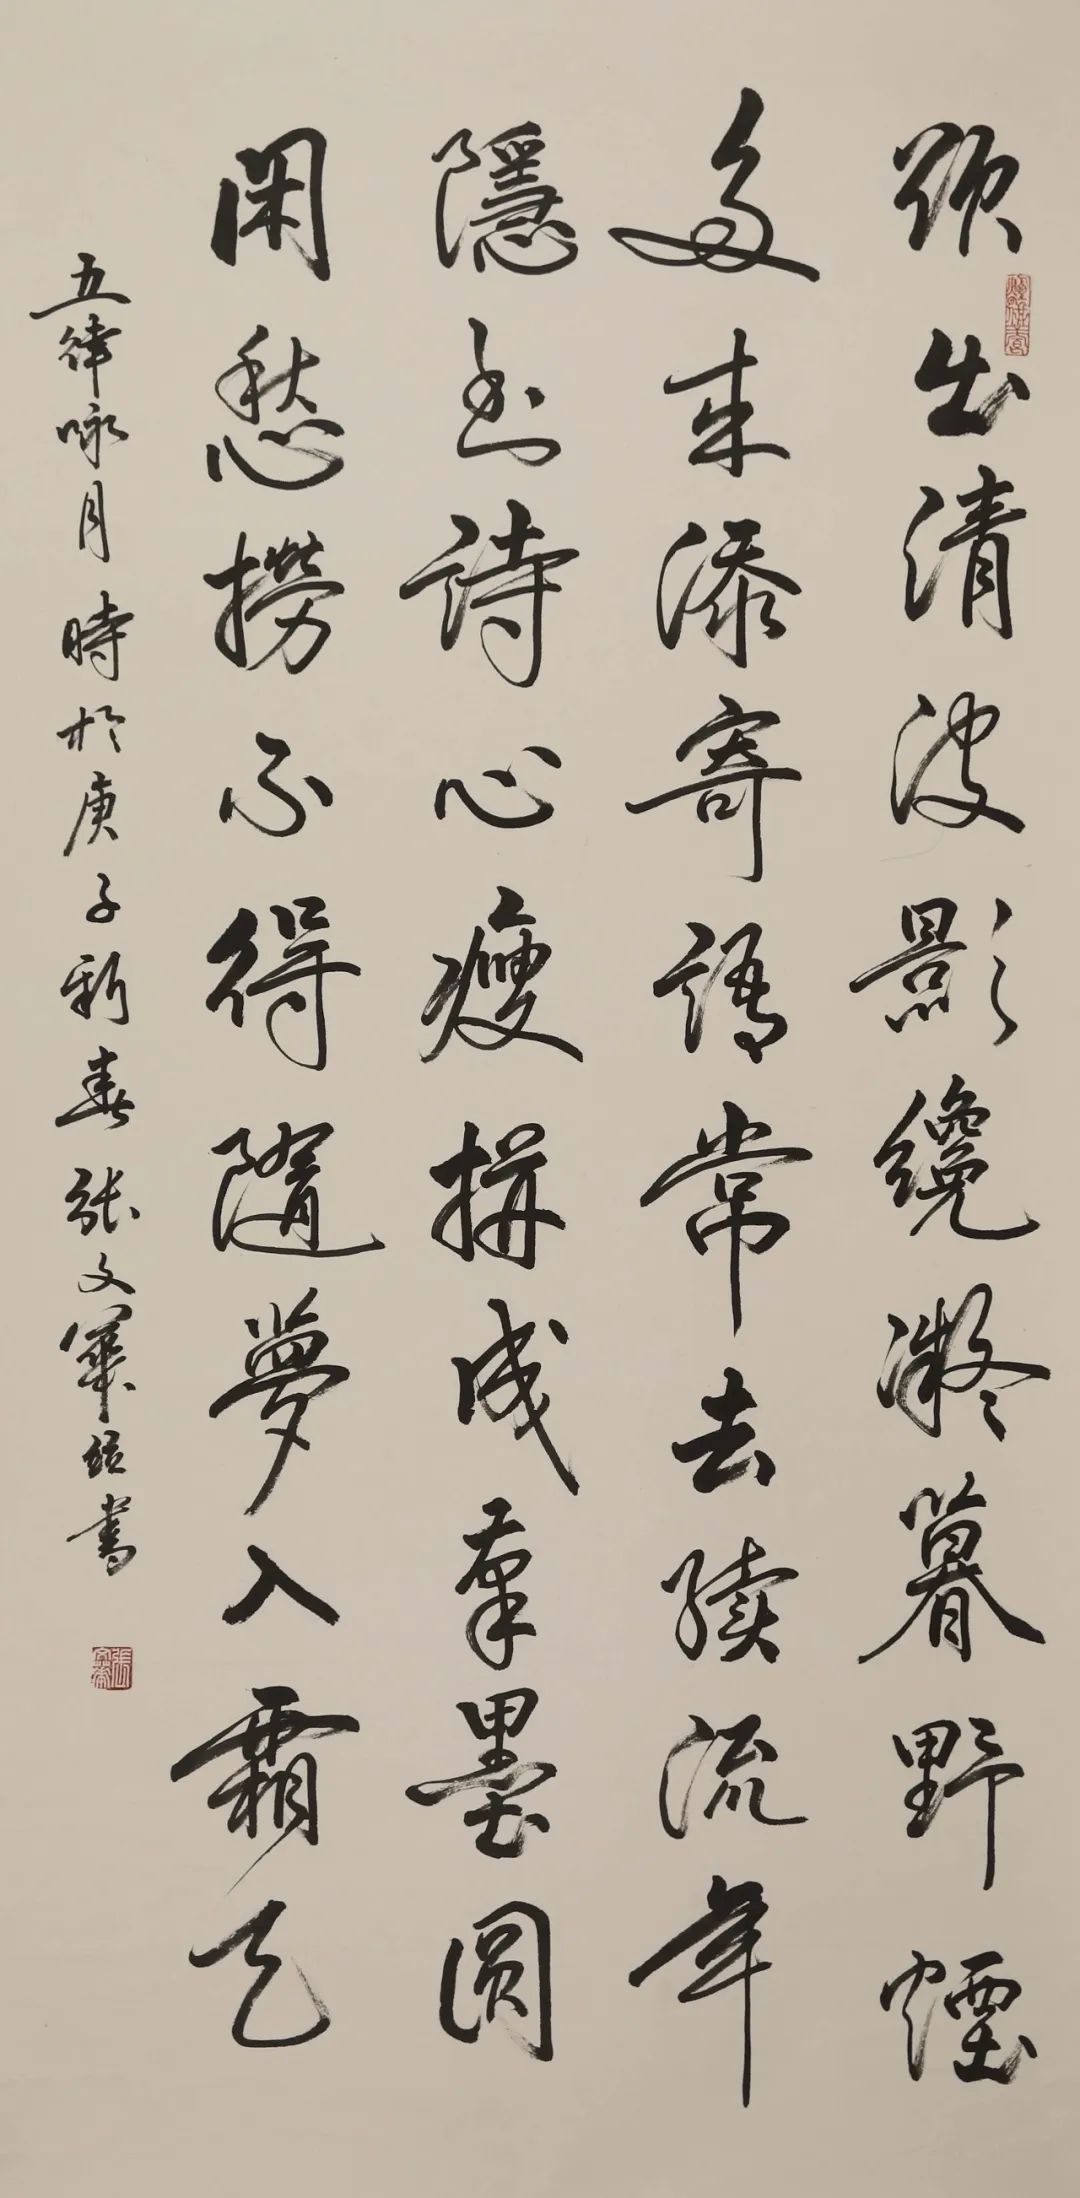 欲出清波影纔凝暮野煙
多來添寄語常去續流年
隱到詩心瘦拼成筆墨圓
閑愁撈不得隨夢入霜天
五律咏月時於庚子新春張文華書